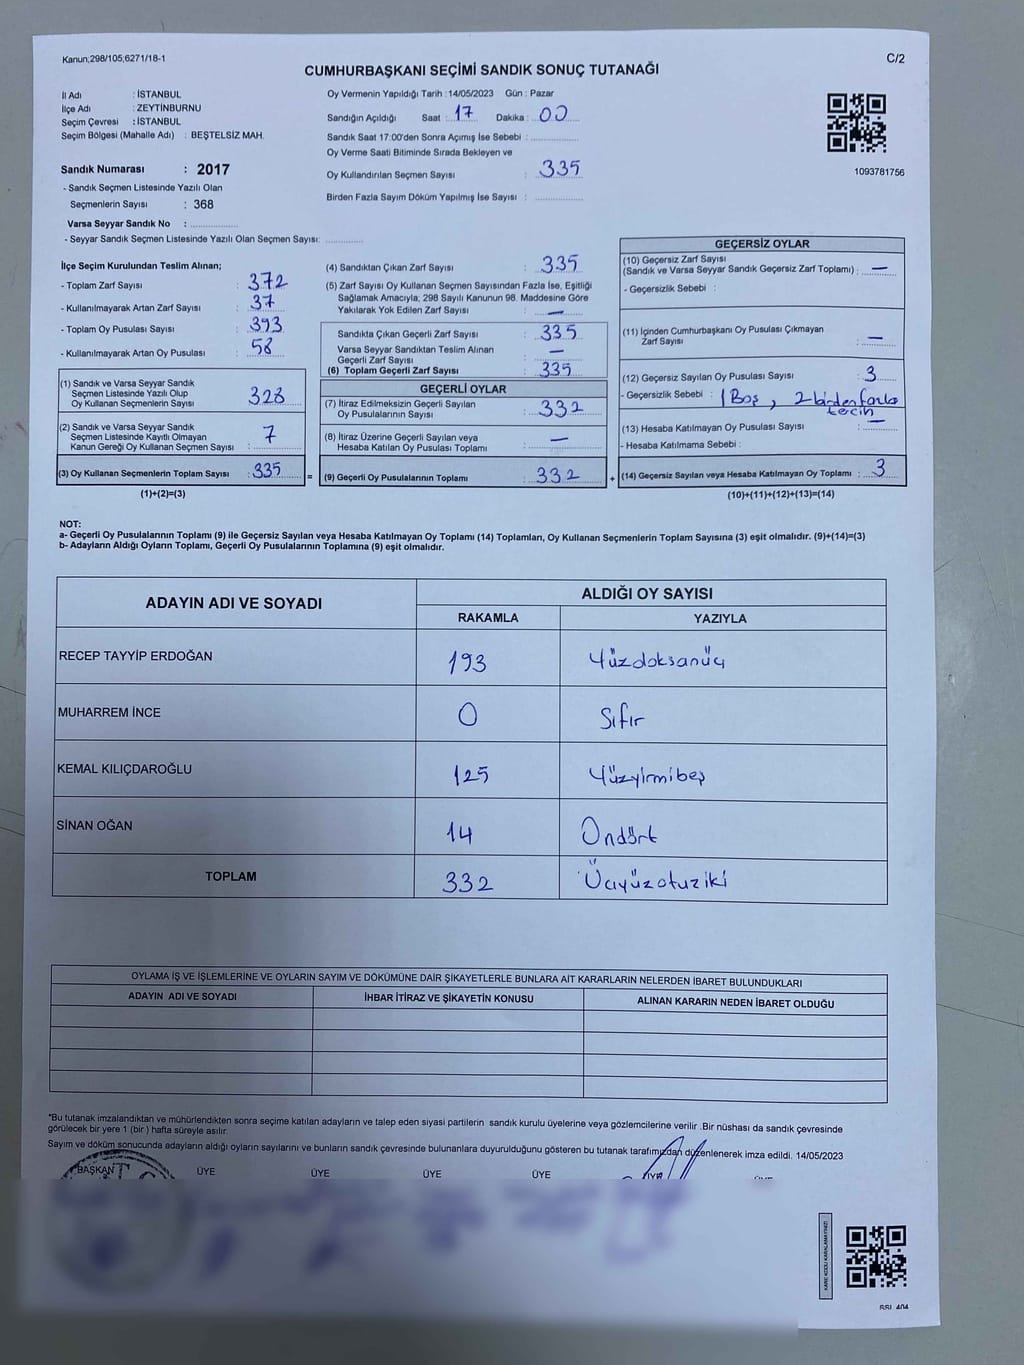 Kanun;298/105;6271/18-1
C/2
CUMHURBAŞKANI SEÇİMİ SANDIK SONUÇ TUTANAĞI
İl Adı : İSTANBUL
İlçe Adı : ZEYTİNBURNU
Seçim Çevresi : İSTANBUL
Seçim Bölgesi (Mahalle Adı) : BEŞTELSİZ MAH.
Sandık Numarası : 2017
- Sandık Seçmen Listesinde Yazılı Olan
Seçmenlerin Sayısı : 368
Varsa Seyyar Sandık No :
- Seyyar Sandık Seçmen Listesinde Yazılı Olan Seçmen Sayısı:
Oy Vermenin Yapıldığı Tarih : 14/05/2023 Gün : Pazar
Sandığın Açıldığı Saat : 17 Dakika : 00
Sandık Saat 17:00'den Sonra Açımış İse Sebebi :
Oy Verme Saati Bitiminde Sırada Bekleyen ve
Oy Kullandırılan Seçmen Sayısı : 335
Birden Fazla Sayım Döküm Yapılmış İse Sayısı :
1093781756
İlçe Seçim Kurulundan Teslim Alınan;
- Toplam Zarf Sayısı : 372
- Kullanılmayarak Artan Zarf Sayısı : 37
- Toplam Oy Pusulası Sayısı : 393
- Kullanılmayarak Artan Oy Pusulası : 58
(1) Sandık ve Varsa Seyyar Sandık
Seçmen Listesinde Yazılı Olup
Oy Kullanan Seçmenlerin Sayısı : 328
(2) Sandık ve Varsa Seyyar Sandık
Seçmen Listesinde Kayıtlı Olmayan
Kanun Gereği Oy Kullanan Seçmen Sayısı : 7
(3) Oy Kullanan Seçmenlerin Toplam Sayısı : 335
(1)+(2)=(3)
(4) Sandıktan Çıkan Zarf Sayısı : 335
(5) Zarf Sayısı Oy Kullanan Seçmen Sayısından Fazla İse, Eşitliği
Sağlamak Amacıyla, 298 Sayılı Kanunun 98. Maddesine Göre
Yakılarak Yok Edilen Zarf Sayısı : —
Sandıkta Çıkan Geçerli Zarf Sayısı : 335
Varsa Seyyar Sandıktan Teslim Alınan
Geçerli Zarf Sayısı : —
(6) Toplam Geçerli Zarf Sayısı : 335
GEÇERLİ OYLAR
(7) İtiraz Edilmeksizin Geçerli Sayılan
Oy Pusulalarının Sayısı : 332
(8) İtiraz Üzerine Geçerli Sayılan veya
Hesaba Katılan Oy Pusulası Toplamı : —
= (9) Geçerli Oy Pusulalarının Toplamı : 332
GEÇERSİZ OYLAR
(10) Geçersiz Zarf Sayısı
(Sandık ve Varsa Seyyar Sandık Geçersiz Zarf Toplamı) : —
- Geçersizlik Sebebi :
(11) İçinden Cumhurbaşkanı Oy Pusulası Çıkmayan
Zarf Sayısı : —
(12) Geçersiz Sayılan Oy Pusulası Sayısı : 3
- Geçersizlik Sebebi : 1 Boş, 2 birden fazla
tercih
(13) Hesaba Katılmayan Oy Pusulası Sayısı : —
- Hesaba Katılmama Sebebi :
+ (14) Geçersiz Sayılan veya Hesaba Katılmayan Oy Toplamı : 3
(10)+(11)+(12)+(13)=(14)
NOT:
a- Geçerli Oy Pusulalarının Toplamı (9) ile Geçersiz Sayılan veya Hesaba Katılmayan Oy Toplamı (14) Toplamları, Oy Kullanan Seçmenlerin Toplam Sayısına (3) eşit olmalıdır. (9)+(14)=(3)
b- Adayların Aldığı Oyların Toplamı, Geçerli Oy Pusulalarının Toplamına (9) eşit olmalıdır.
ADAYIN ADI VE SOYADI
ALDIĞI OY SAYISI
RAKAMLA YAZIYLA
RECEP TAYYİP ERDOĞAN 193 Yüzdoksanüç
MUHARREM İNCE 0 Sıfır
KEMAL KILIÇDAROĞLU 125 Yüzyirmibeş
SİNAN OĞAN 14 Ondört
TOPLAM 332 Üçyüzotuziki
OYLAMA İŞ VE İŞLEMLERİNE VE OYLARIN SAYIM VE DÖKÜMÜNE DAİR ŞİKAYETLERLE BUNLARA AİT KARARLARIN NELERDEN İBARET BULUNDUKLARI
ADAYIN ADI VE SOYADI İHBAR İTİRAZ VE ŞİKAYETİN KONUSU ALINAN KARARIN NEDEN İBARET OLDUĞU
*Bu tutanak imzalandıktan ve mühürlendikten sonra seçime katılan adayların ve talep eden siyasi partilerin sandık kurulu üyelerine veya gözlemcilerine verilir .Bir nüshası da sandık çevresinde
görülecek bir yere 1 (bir ) hafta süreyle asılır.
Sayım ve döküm sonucunda adayların aldığı oyların sayılarını ve bunların sandık çevresinde bulunanlara duyurulduğunu gösteren bu tutanak tarafımızdan düzenlenerek imza edildi. 14/05/2023
BAŞKAN ÜYE ÜYE ÜYE ÜYE ÜYE ÜYE